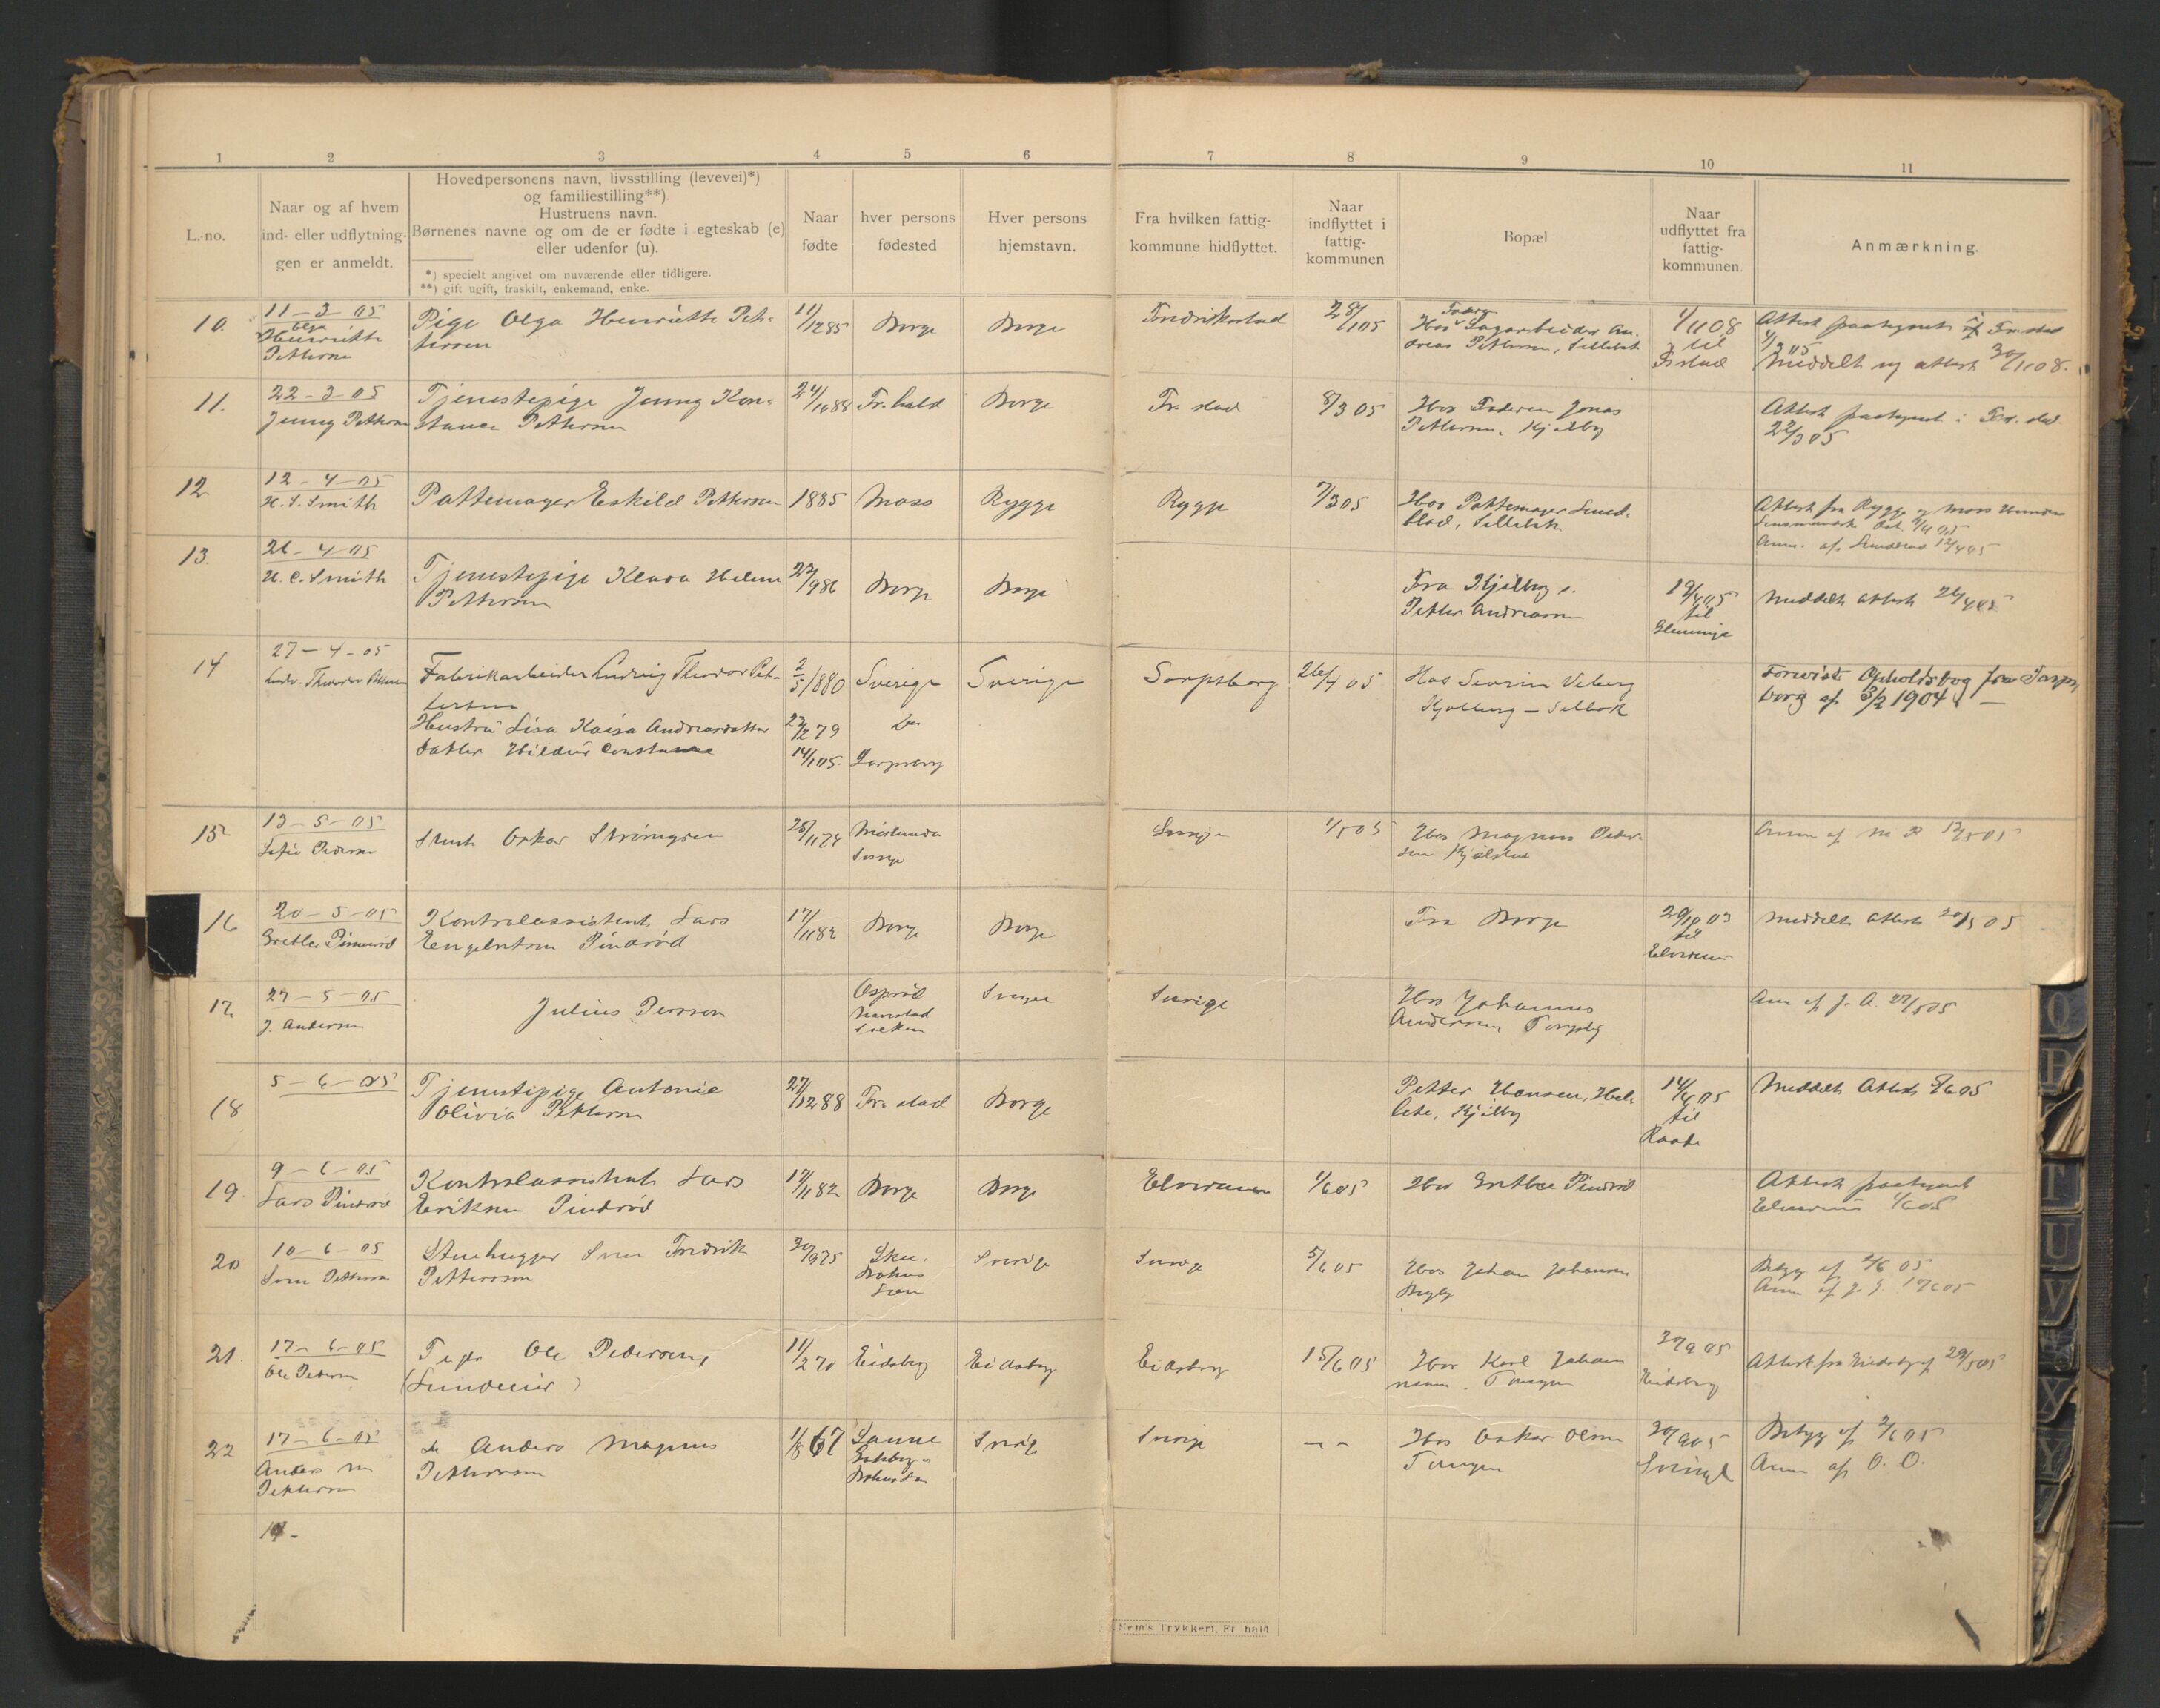 1 2 3 4 5 6 7 8 9 10 11
L.-no.
Naar og af hvem
ind- eller udflytnin-
gen er anmeldt.
Hovedpersonens navn, livsstilling (levevei)*)
og familiestilling**).
Hustruens navn.
Børnenes navne og om de er fødte i egteskab (e)
eller udenfor (u).
*) specielt angivet om nuværende eller tidligere.
**) gift ugift, fraskilt, enkemand, enke.
Naar
fødte
hver persons
fødested
Hver persons
hjemstavn.
Fra hvilken fattig-
kommune hidflyttet.
Naar
indflyttet i
fattig-
kommunen
Bopæl
Naar
udflyttet fra
fattig-
kommunen.
Anmærkning.
10. 11-3-05
Olga
Henriette
Petterson
Pige Olga Henriette Pet-
terson
11/12 85 Borge Borge
Fredrikstad 28/1 05
Hos Sagarbeider An-
dreas Petterson, Sellebak
1/1 08
til
Fr.stad
Attest paategnet i Fr. stad
1/3 05
Meddelt ny attest 30/1 08.
11. 22-3-05
Jenny Petterson
Tjenestepige Jenny Kon-
stance Petterson
24/10 88 Fr.hald Borge
Fr. stad 8/3 05
Hos Faderen Jonas
Petterson, Kjølby
Attest paategnet i Fr. stad
22/3 05
12 12-4-05
H. C. Smith
Pottemager Eskild Petterson 1885 Moss Rygge
Rygge 7/3 05
Hos Pottemager Lund-
blad, Sellebak
Attest fra Rygge og Moss
Anm. af Lundblad 12/4 05
13 26-4-05
H. C. Smith
Tjenestepige Klara Helene
Petterson
23/9 86 Borge Borge
Fra Kjølberg
Petter Andreasen
19/4 05
til
Glemminge
Meddelt attest 26/4 05
14 27-4-05
Ludv. Theodor Petterson
Fabrikarbeider Ludvig Theodor Pet-
terson
Hustru Lisa Kaisa Andreasdatter
Datter Hildur Constance
2/5 1880 Sverige Sverige
23/2 79 Do
14/1 05. Sarpsborg
Sarpsborg 26/4 05
Hos Severin Viberg
Kjølberg - Sellebak
Forevist Opholdsbog fra Sarps-
borg af 3/2 1904 -
15 13-5-05
Sofie Pedersen
Smed Oskar Strömgren
25/11 74
Sverige
Sverige 1/5 05
Hos Magnus Peder-
sen
Anm af M P 13/5 05
16 20-5-05
Grethe Pinerød
Kontrolassistent Lars
Engebretsen Pinerød
17/11 82 Borge Borge
Fra Borge
29/10 03
til
Elverum
Meddelt attest 20/5 05
17. 27-5-05
J. Andersen
Julius Persson
Sverige
Sverige
Hos Johannes
Andersen Torgeby
Anm af J. A. 27/5 05
18 5-6-05
Tjenestepige Antonie
Olivia Petterson
27/12 88 Fr. stad Borge
Petter Hansen,
Kjølby
14/6 05
til
Raade
Meddelt Attest 5/6 05
19. 9-6-05
Lars Pinerød
Kontrolassistent Lars
Eriksen Pinerød
17/11 82 Borge Borge
Elverum 1/6 05
Hos Grethe Pinerød
Attest paategnet
Elverum 1/6 05
20 10-6-05
Sven Petterson
Stenhugger Sven Fredrik
Pettersson
30/9 75
Skee
Bohus
Län
Sverige
Sverige 5/6 05
Hos Johan Johansen
Begby
Betyg af 2/6 05
Anm af J. J. 10/6 05
21. 17-6-05
Ole Pedersen
Ole Pedersen,
11/2 70 Eidsberg Eidsberg
Eidsberg 15/6 05
Hos Karl Johan
Tangen
30/9 05
Eidsberg
Attest fra Eidsberg af 29/5 05
22 17-6-05
Anders M
Petterson
do Anders Magnus
Pettersson
1/8 67 Sanne
Göteborg o
Bohus Län
Sverige
Sverige - -
Hos Oskar Olsen
Tangen
30/9 05
Sverige
Betyg af 2/6 05
Anm af O. O.
Nem's Trykkeri, Fr. hald
O P T U V X Y Z